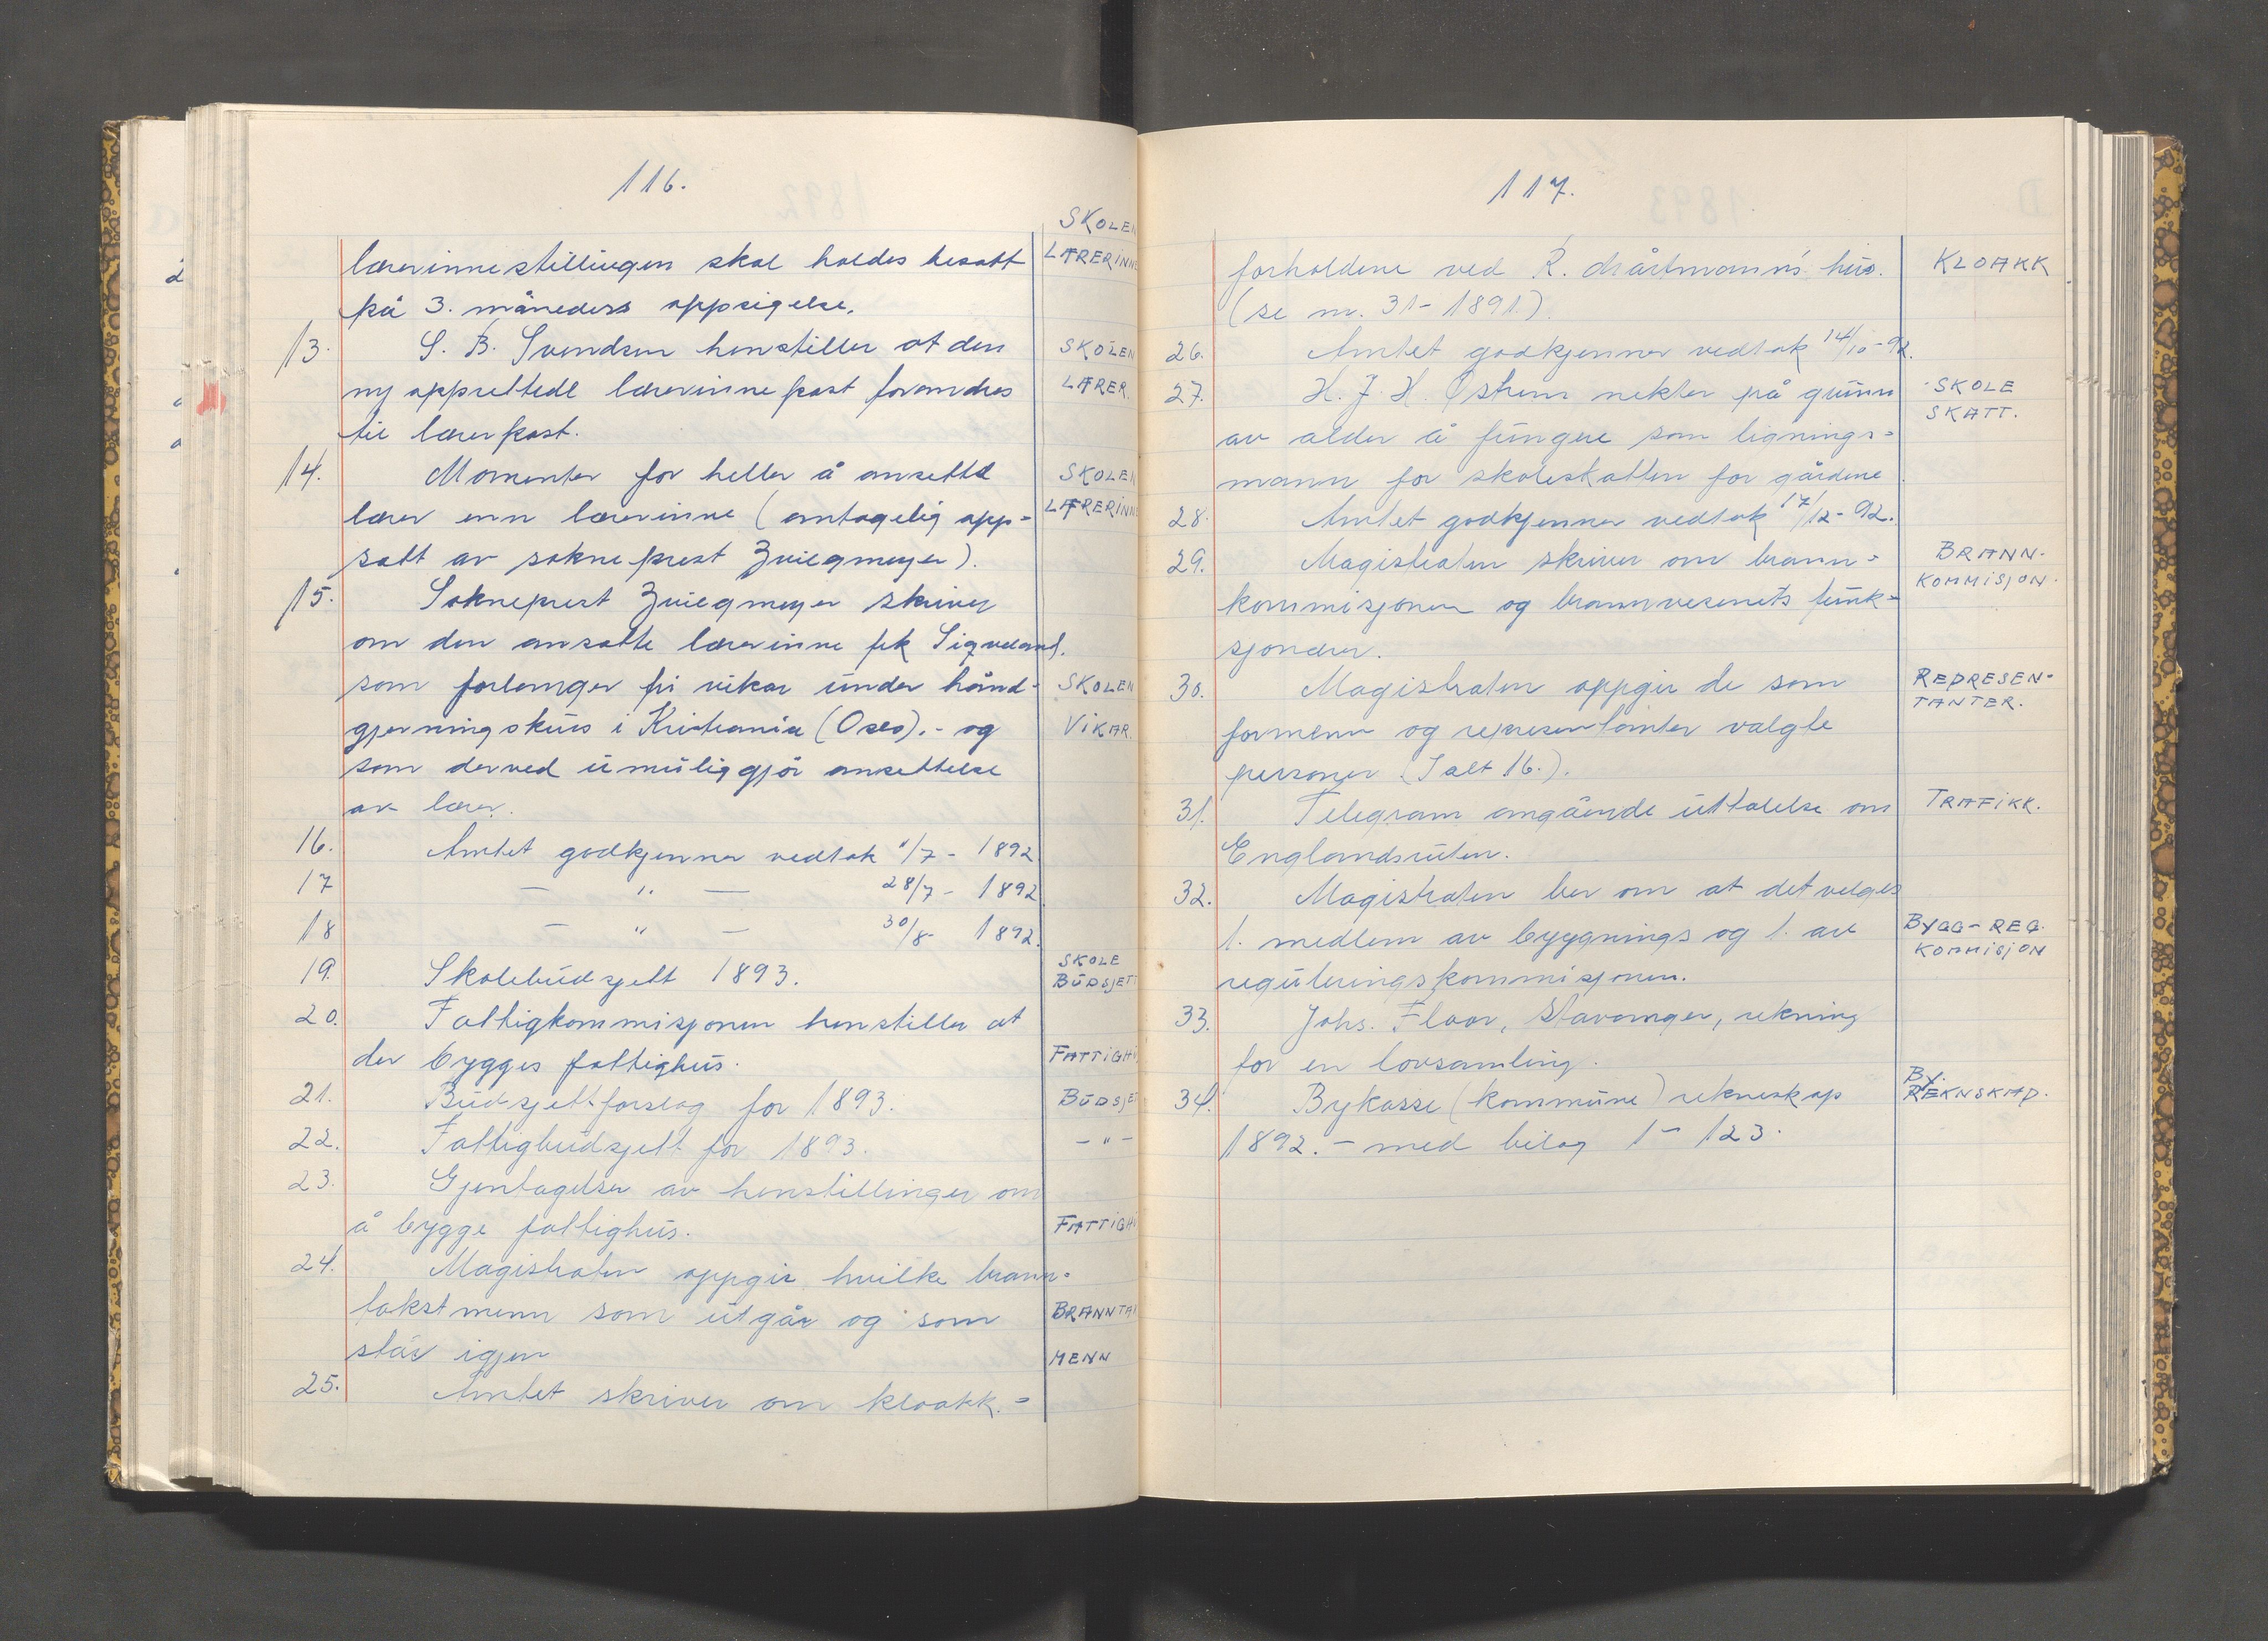 116.
SKOLEN
lærerinnestillingen skal holdes besatt LÆRERINNE
på 3. måneders oppsigelse.
13. S. B. Svendsen henstiller at den SKOLEN
ny opprettede lærerinnepost forandres LÆRER.
til lærerpost.
14. Momenter for heller å ansette SKOLEN
lærer enn lærerinne (antagelig opp= LÆRERINNE
satt av sokneprest Zwiegmeyer).
15. Sokneprest Zwiegmeyer skriver
om den ansatte lærerinne frk Sigveland.
som forlanger fri vikar under hånd- SKOLEN
gjerningskurs i Kristiania (Oslo).- og VIKAR.
som derved umuliggjør ansettelse
av lærer.
16. Amtet godkjenner vedtak "/7 - 1892
17 — " — 28/7 - 1892
18 — " — 30/8- 1892.
19. Skolebudsjett 1893. SKOLE BUDSJETT
20. Fattigkommisjonen henstiller at
der bygges fattighus. FATTIGH
21. Budsjettforslag for 1893. BUDSJET
22. Fattigbudsjett for 1893. - " -
23. Gjentagelser av henstillinger om
å bygge fattighus. FATTIGH
24. Magistraten oppgir hvilke brann=
takstmenn som utgår og som BRANNTA
står igjen MENN
25. Amtet skriver om kloakk.=
117.
forholdene ved R. hus. KLOAKK
(se nr. 31 - 1891).
26. Amtet godkjenner vedtak 14/10-92.
27. H. J. H. Østrem nekter på grunn SKOLE
av alder å fungere som lignings= SKATT.
mann for skoleskatten for gårdene
28. Amtet godkjenner vedtak 17/12-92.
29. Magistraten skriver om brann= BRANN-
kommisjonen og brannvesenets funk= KOMMISJON.
sjonærer.
30. Magistraten oppgir de som REPRESEN-
formenn og representanter valgte TANTER.
personer (I alt 16.).
31. Telegram angående uttalelse om TRAFIKK.
Englandsruten.
32. Magistraten ber om at det velges
1. medlem av bygnings og 1. av BYGG-REG.
reguleringskommisjonen. KOMMISJON
33. Johs. Floor, Stavanger, rekning
for en lovsamling.
34. Bykasse (kommune) rekneskap BY. REKNSKAP.
1892. - med bilag 1 - 123.